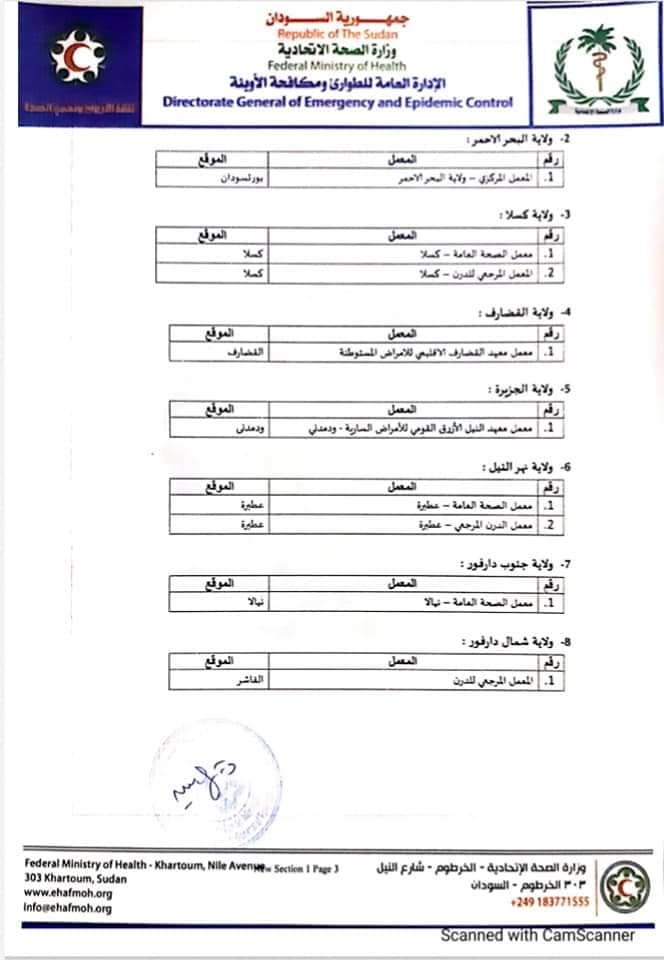 جمهورية السودان
Republic of The Sudan
وزارة الصحة الاتحادية
Federal Ministry of Health
الإدارة العامة للطوارئ ومكافحة الأوبئة
Directorate General of Emergency and Epidemic Control
ننقذ الأرواح ونحمي الصحة
2- ولاية البحر الاحمر :
رقم المعمل الموقع
1. المعمل المركزي – ولاية البحر الاحمر بورتسودان
3- ولاية كسلا :
رقم المعمل الموقع
1. معمل الصحة العامة – كسلا كسلا
2. المعمل المرجعي للدرن – كسلا كسلا
4- ولاية القضارف :
رقم المعمل الموقع
1. معمل معهد القضارف الاقليمي للأمراض المستوطنة القضارف
5- ولاية الجزيرة :
رقم المعمل الموقع
1. معمل معهد النيل الأزرق القومي للأمراض السارية - ودمدني ودمدنى
6- ولاية نهر النيل :
رقم المعمل الموقع
1. معمل الصحة العامة – عطبرة عطبرة
2. معمل الدرن المرجعي – عطبرة عطبرة
7- ولاية جنوب دارفور :
رقم المعمل الموقع
1. معمل الصحة العامة – نيالا نيالا
8- ولاية شمال دارفور :
رقم المعمل الموقع
1. المعمل المرجعي للدرن الفاشر
Federal Ministry of Health - Khartoum, Nile Avenue
303 Khartoum, Sudan
www.ehafmoh.org
info@ehafmoh.org
New Section 1 Page 3
وزارة الصحة الإتحادية - الخرطوم - شارع النيل
٣٠٣ الخرطوم - السودان
+249 183771555
Scanned with CamScanner